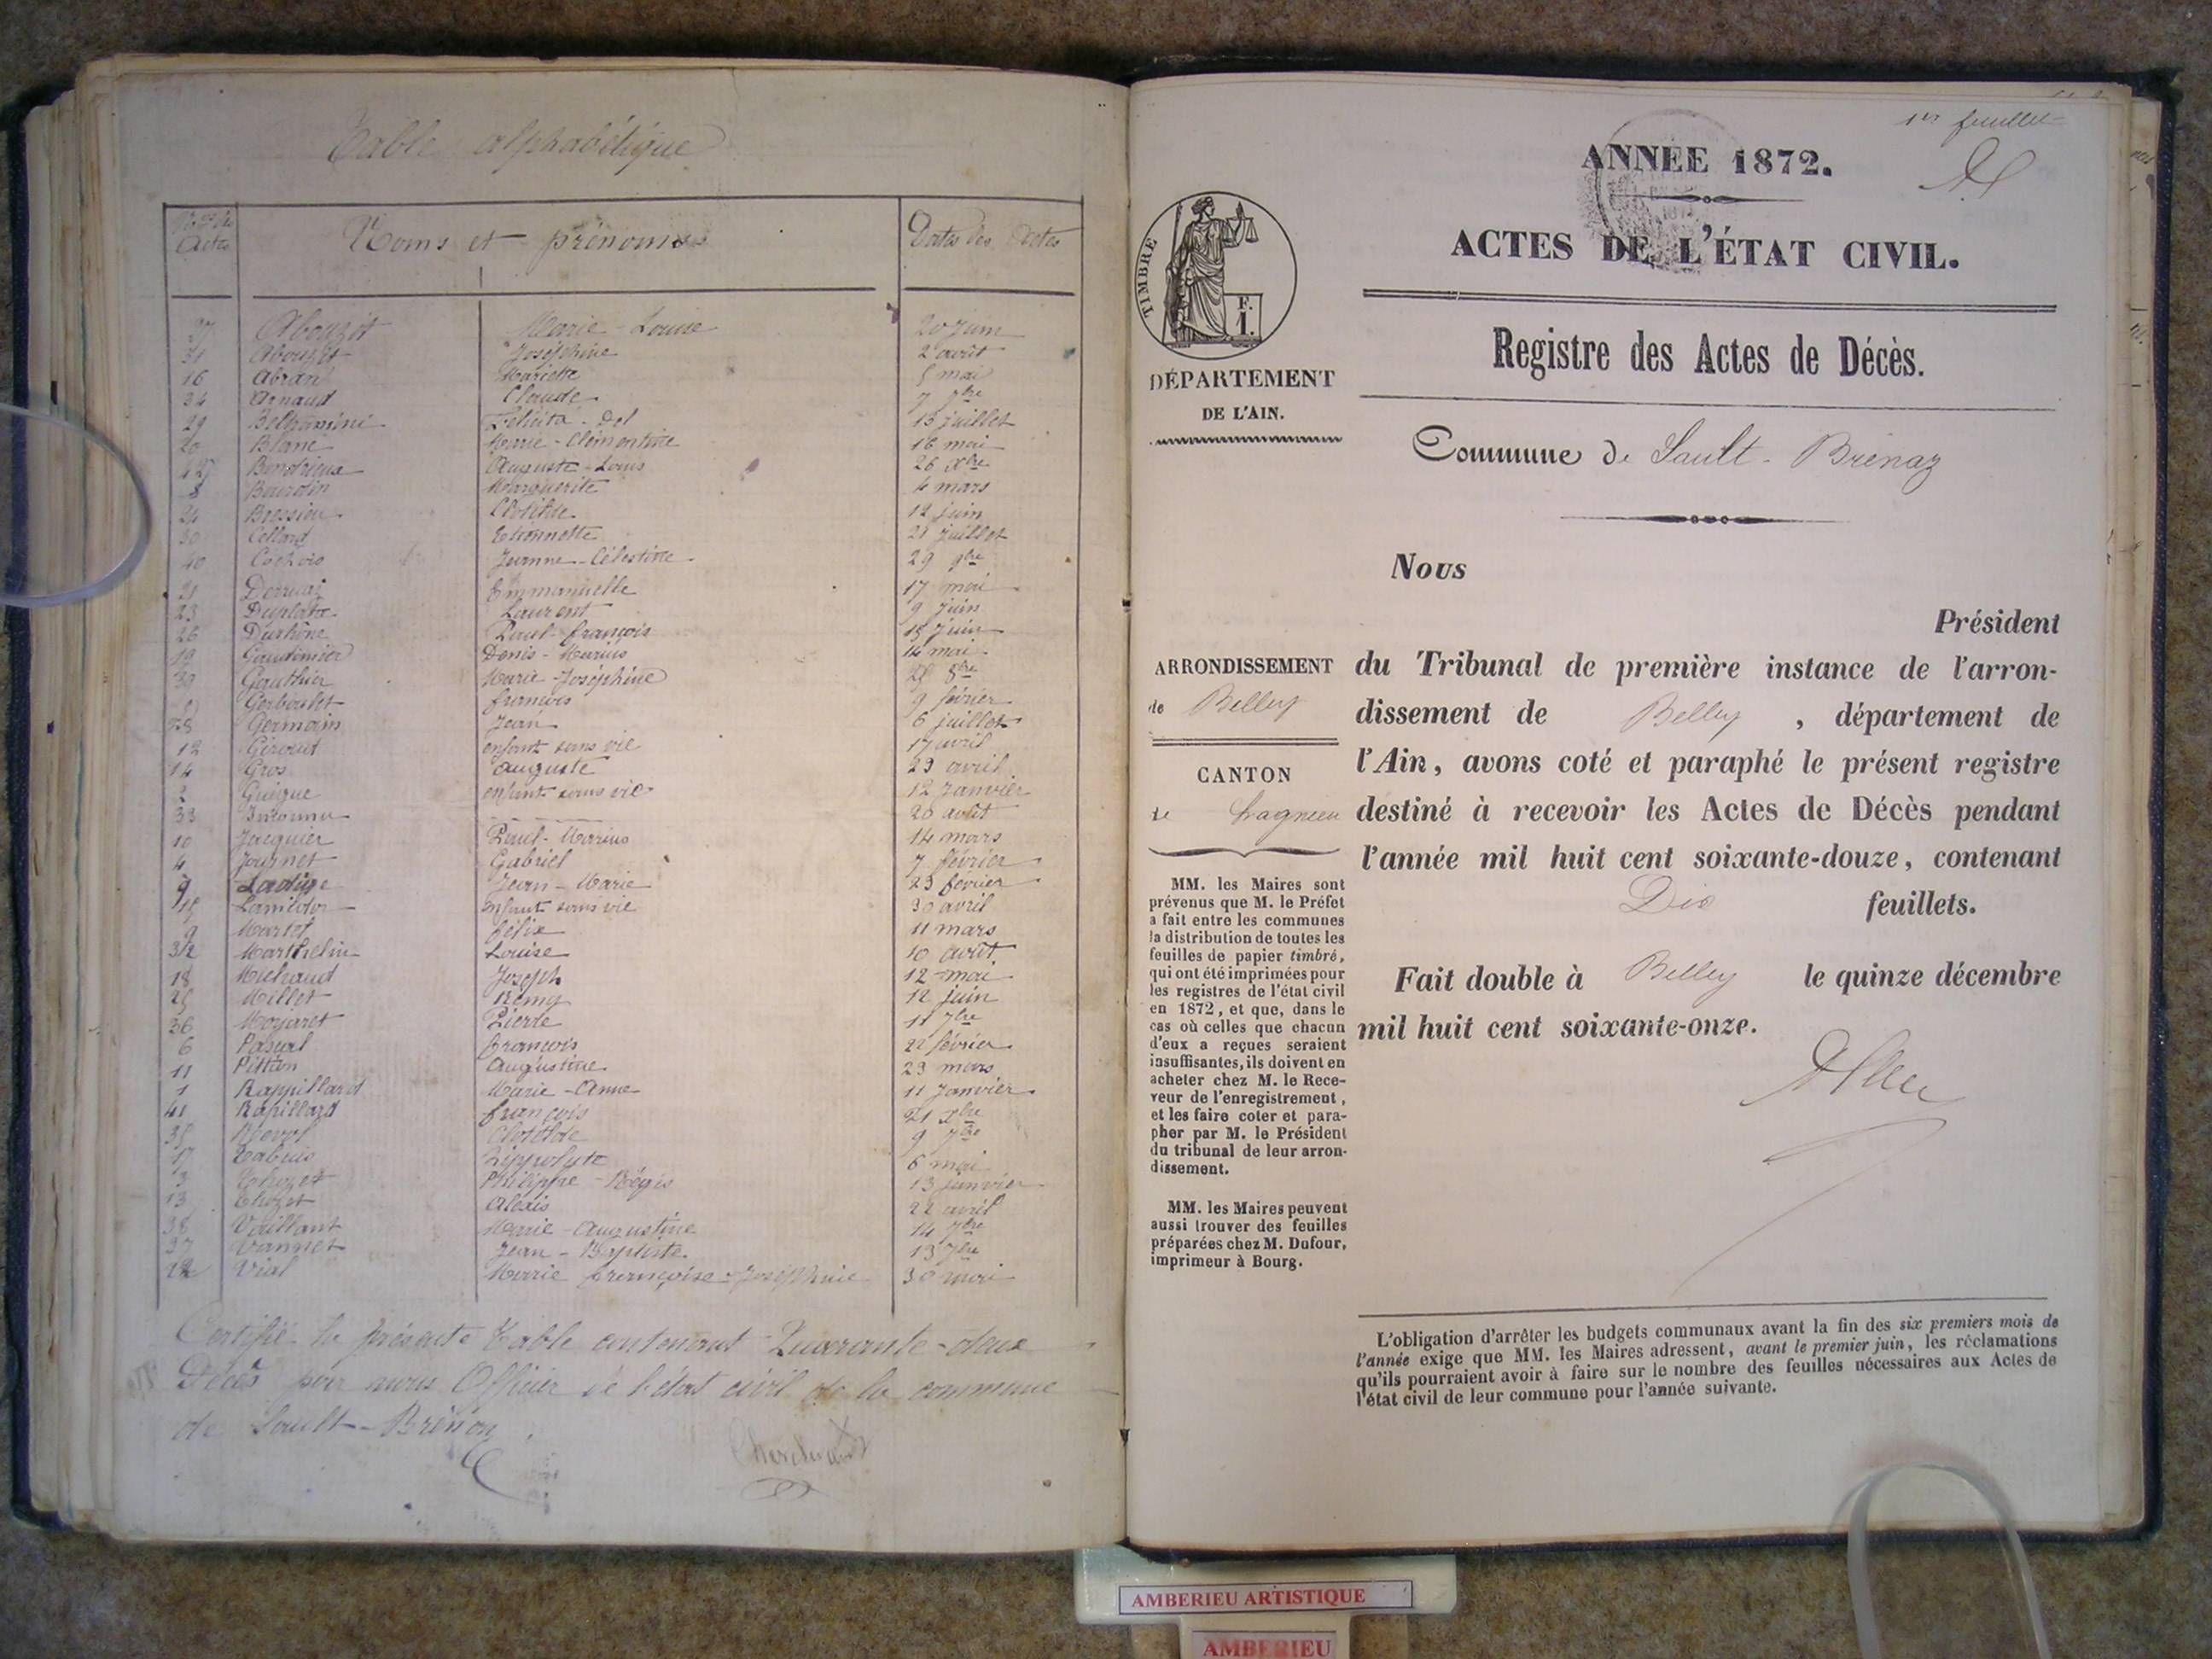 Table alphabétique
Actes
Noms et prénoms
Dates des Actes
27 Abouzit Marie - Louise 20 juin
31 Abouzit Joséphine 2 août
16 Abran Mariette 5 mai
34 Arnaud Claude 7 7bre
29 Beltramini Félicita - Del 15 juillet
20 Blanc Marie - Clémentine 16 mai
Auguste - Louis 26 Xbre
8 Bourdin Marguerite 4 mars
24 Bressieu Clotilde 12 juin
30 Collard Etiennette 21 juillet
40 Jeanne - Célestine 29 9bre
21 Emmanuelle 17 mai
23 Laurent 9 juin
26 Paul - françois 15 juin
19 Denis - Marius 14 mai
39 Gauthier Marie - Joséphine 8bre
françois 9 février
28 Germain Jean 6 juillet
12 Giroud enfant sans vie 17 avril
14 Gros auguste 29 avril
2 Guigue enfant sans vie 12 Janvier
33 Inconnu 20 août
10 Jacquier Paul - Marius 14 mars
4 Journet Gabriel 7 février
Jean - Marie 23 février
15 enfant sans vie 30 avril
9 Martel félix 11 mars
32 Marthelin Louise 10 août
18 Michaud Joseph 12 mai
25 Millet Rémy 12 juin
36 Pierre 11 7bre
6 Pascal françois 22 février
11 Pitton Augustine 29 mars
1 Rappillard Marie - Anne 11 Janvier
41 Rapillard françois 21 Xbre
35 Revol Clotilde 9 7bre
17 hippolyte 6 mai
3 Thozet Philippe - Régis 13 janvier
13 Thozet Alexis 22 avril
38 Vaillant Marie - Augustine 14 7bre
37 Vannet Jean - Baptiste 13 7bre
22 Vial Marie françoise Joséphine 30 mai
Certifié la présente Table contenant Quarante-deux
Décès par nous Officier de l'état civil de la commune
de Sault-Brénaz
1er feuillet
ANNÉE 1872.
ACTES DE L'ÉTAT CIVIL.
TIMBRE
F.
1.
DÉPARTEMENT
DE L'AIN.
Registre des Actes de Décès.
Commune de Sault - Brénaz
Nous
Président
ARRONDISSEMENT
de Belley
CANTON
de Lagnieu
du Tribunal de première instance de l'arron-
dissement de Belley , département de
l'Ain, avons coté et paraphé le présent registre
destiné à recevoir les Actes de Décès pendant
l'année mil huit cent soixante-douze, contenant
Dix feuillets.
Fait double à Belley le quinze décembre
mil huit cent soixante-onze.
MM. les Maires sont
prévenus que M. le Préfet
a fait entre les communes
la distribution de toutes les
feuilles de papier timbré,
qui ont été imprimées pour
les registres de l'état civil
en 1872, et que, dans le
cas où celles que chacun
d'eux a reçues seraient
insuffisantes, ils doivent en
acheter chez M. le Rece-
veur de l'enregistrement,
et les faire coter et para-
pher par M. le Président
du tribunal de leur arron-
dissement.
MM. les Maires peuvent
aussi trouver des feuilles
préparées chez M. Dufour,
imprimeur à Bourg.
L'obligation d'arrêter les budgets communaux avant la fin des six premiers mois de
l'année exige que MM. les Maires adressent, avant le premier juin, les réclamations
qu'ils pourraient avoir à faire sur le nombre des feuilles nécessaires aux Actes de
l'état civil de leur commune pour l'année suivante.
AMBERIEU ARTISTIQUE
AMBERIEU